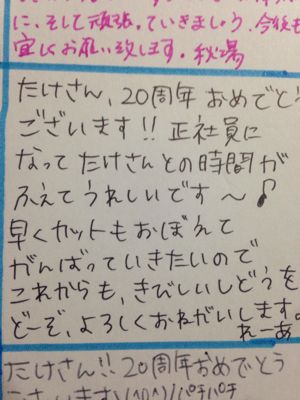 に、そして頑張っていきましょう。今後も
宜しくお願い致します。秋場
たけさん、20周年おめでとう
ございます!!正社員に
なってたけさんとの時間が
ふえてうれしいです〜♪
早くカットもおぼえて
がんばっていきたいので
これからも、きびしいしどうを
どーぞ、よろしくおねがいします。
れーあ
たけさん!!20周年おめでとう
ございます\(^o^)/パチパチ